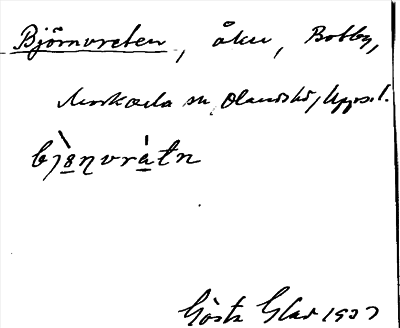 Björnvreten, åker, Botby,
Morkarla sn, Olands hd, Upps. l.
bjɜ̀nvrátn
Gösta Glad 1937